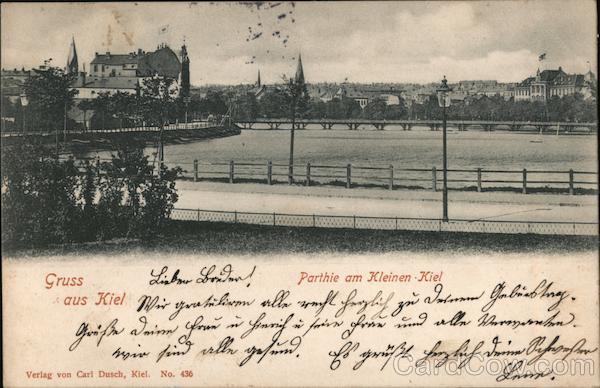 Gruss aus Kiel
Parthie am Kleinen-Kiel
Lieber Bruder!
Wir gratuliren alle recht herzlich zu Deinem Geburtstag.
Grüße deine Frau u Heinrich u seine Frau und alle Verwanten.
wir sind alle gesund. Es grüßt herzlich deine Schwester
Lene.
Verlag von Carl Dusch, Kiel. No. 436
CardCow.com